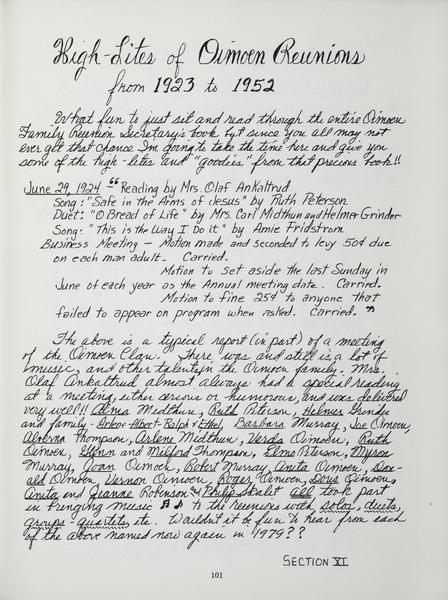 High-Lites of Oimoen Reunions
from 1923 to 1952
What fun to just sit and read through the entire Oimoen
Family Reunion Secretary's book but since you all may not
ever get that chance I'm going to take the time here and give you
some of the high-lites and "goodies" from that precious book!!
June 29, 1924 "Reading by Mrs. Olaf Ankaltrud
Song: "Safe in the Arms of Jesus" by Ruth Peterson
Duet: "O Bread of Life" by Mrs. Carl Midthun and Helmer Grinder
Song: "This is the Way I Do it" by Amie Fridstrom
Business Meeting - Motion made and seconded to levy 50¢ due
on each man adult. Carried.
Motion to set aside the last Sunday in
June of each year as the Annual meeting date. Carried.
Motion to fine 25¢ to anyone that
failed to appear on program when asked. Carried. "
The above is a typical report (in part) of a meeting
of the Oimoen Clan. There was and still is a lot of
music, and other talent in the Oimoen family. Mrs.
Olaf Ankaltrud almost always had a special reading
at a meeting, either serious or humorous, and was delivered
very well!! Alma Midthun, Ruth Peterson, Helmer Grinder
and family - Arbor - Albert - Ralph & Ethel, Barbara Murray, Joe Oimoen,
Alverna Thompson, Arlene Midthun, Verda Oimoen, Ruth
Oimoen, Glenn and Milford Thompson, Elmo Peterson, Myron
Murray, Joan Oimoen, Robert Murray, Anita Oimoen, Don-
ald Oimoen, Vernon Oimoen, Roger Oimoen, Doris Oimoen,
Anita and Jeanne Robinson and Philip Skalet all took part
in bringing music ♫ ♪ to the reunions with solos, duets,
groups - quartets, etc. Wouldn't it be fun to hear from each
of the above named now again in 1979??
SECTION VI
101